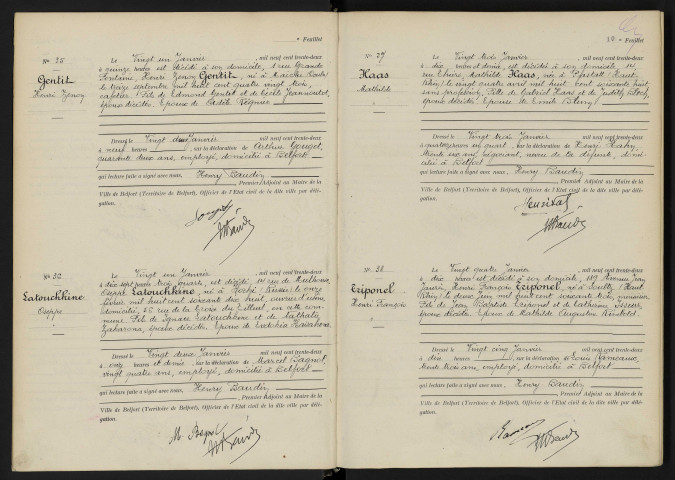 Feuillet
N° 25
Gentit
Henri Zénoy
Le Vingt un Janvier, mil neuf cent trente-deux
à quinze heures est décédé à son domicile, rue Grande
Fontaine, Henri Zénoy Gentit, né à
le treize septembre mil huit cent quatre vingt trois,
Fils de Edmond Gentit et de Cécile Jeannoutot,
époux décédés. Epoux de Odile Régnier
Dressé le Vingt deux Janvier mil neuf cent trente-deux
à neuf heures, sur la déclaration de Arthur Gouget
quarante deux ans, employé, domicilié à Belfort
qui lecture faite a signé avec nous, Henry Baudin
Premier Adjoint au Maire de la
Ville de Belfort (Territoire de Belfort), Officier de l'Etat civil de la dite ville par délé-
gation.
N° 26
Latouchkine
Oseppe
Le Vingt un Janvier, mil neuf cent trente-deux
à dix sept heures trois quarts, est décédé, rue de Mulhouse
Oseppe Latouchkine, né à (Russie) le onze
février mil huit cent soixante dix huit, ouvrier d'usine,
domicilié, 26 rue de la Croix du Tilleul, en cette com-
mune. Fils de Ignace Latouchkine et de Nathalie
Zakarova, époux décédés. Epoux de
Dressé le Vingt deux Janvier mil neuf cent trente-deux
à onze heures et demie, sur la déclaration de Marcel Bagnol
vingt quatre ans, employé, domicilié à Belfort
qui lecture faite a signé avec nous, Henry Baudin
Premier Adjoint au Maire de la
Ville de Belfort (Territoire de Belfort), Officier de l'Etat civil de la dite ville par délé-
gation.
10 Feuillet
N° 27
Haas
Mathilde
Le Vingt trois Janvier, mil neuf cent trente-deux
à dix heures et demie, est décédée à son domicile,
rue Thiers, Mathilde Haas, née à Pfastatt (Haut
Rhin) le vingt quatre avril mil huit cent soixante huit
sans profession, Fille de Gabriel Haas et de Judith Bloch,
époux décédés. Epouse de Emile Blury
Dressé le Vingt trois Janvier mil neuf cent trente-deux
à quatorze heures un quart, sur la déclaration de Henri
trente six ans, négociant, neveu de la défunte, domi-
cilié à Belfort
qui lecture faite a signé avec nous, Henry Baudin
Premier Adjoint au Maire de la
Ville de Belfort (Territoire de Belfort), Officier de l'Etat civil de la dite ville par délé-
gation.
N° 28
Triponel
Henri François
Le Vingt quatre Janvier, mil neuf cent trente-deux
à dix heures est décédé à son domicile, 189 Avenue Jean
Jaurès, Henri François Triponel, né à Soultz (Haut
Rhin) le deux juin mil huit cent soixante trois, menuisier,
Fils de Jean Baptiste Triponel et de Catherine
époux décédés. Epoux de Mathilde Augustine
Dressé le Vingt cinq Janvier mil neuf cent trente-deux
à dix heures, sur la déclaration de Louis Rameaux
trente trois ans, employé, domicilié à Belfort
qui lecture faite a signé avec nous, Henry Baudin
Premier Adjoint au Maire de la
Ville de Belfort (Territoire de Belfort), Officier de l'Etat civil de la dite ville par délé-
gation.